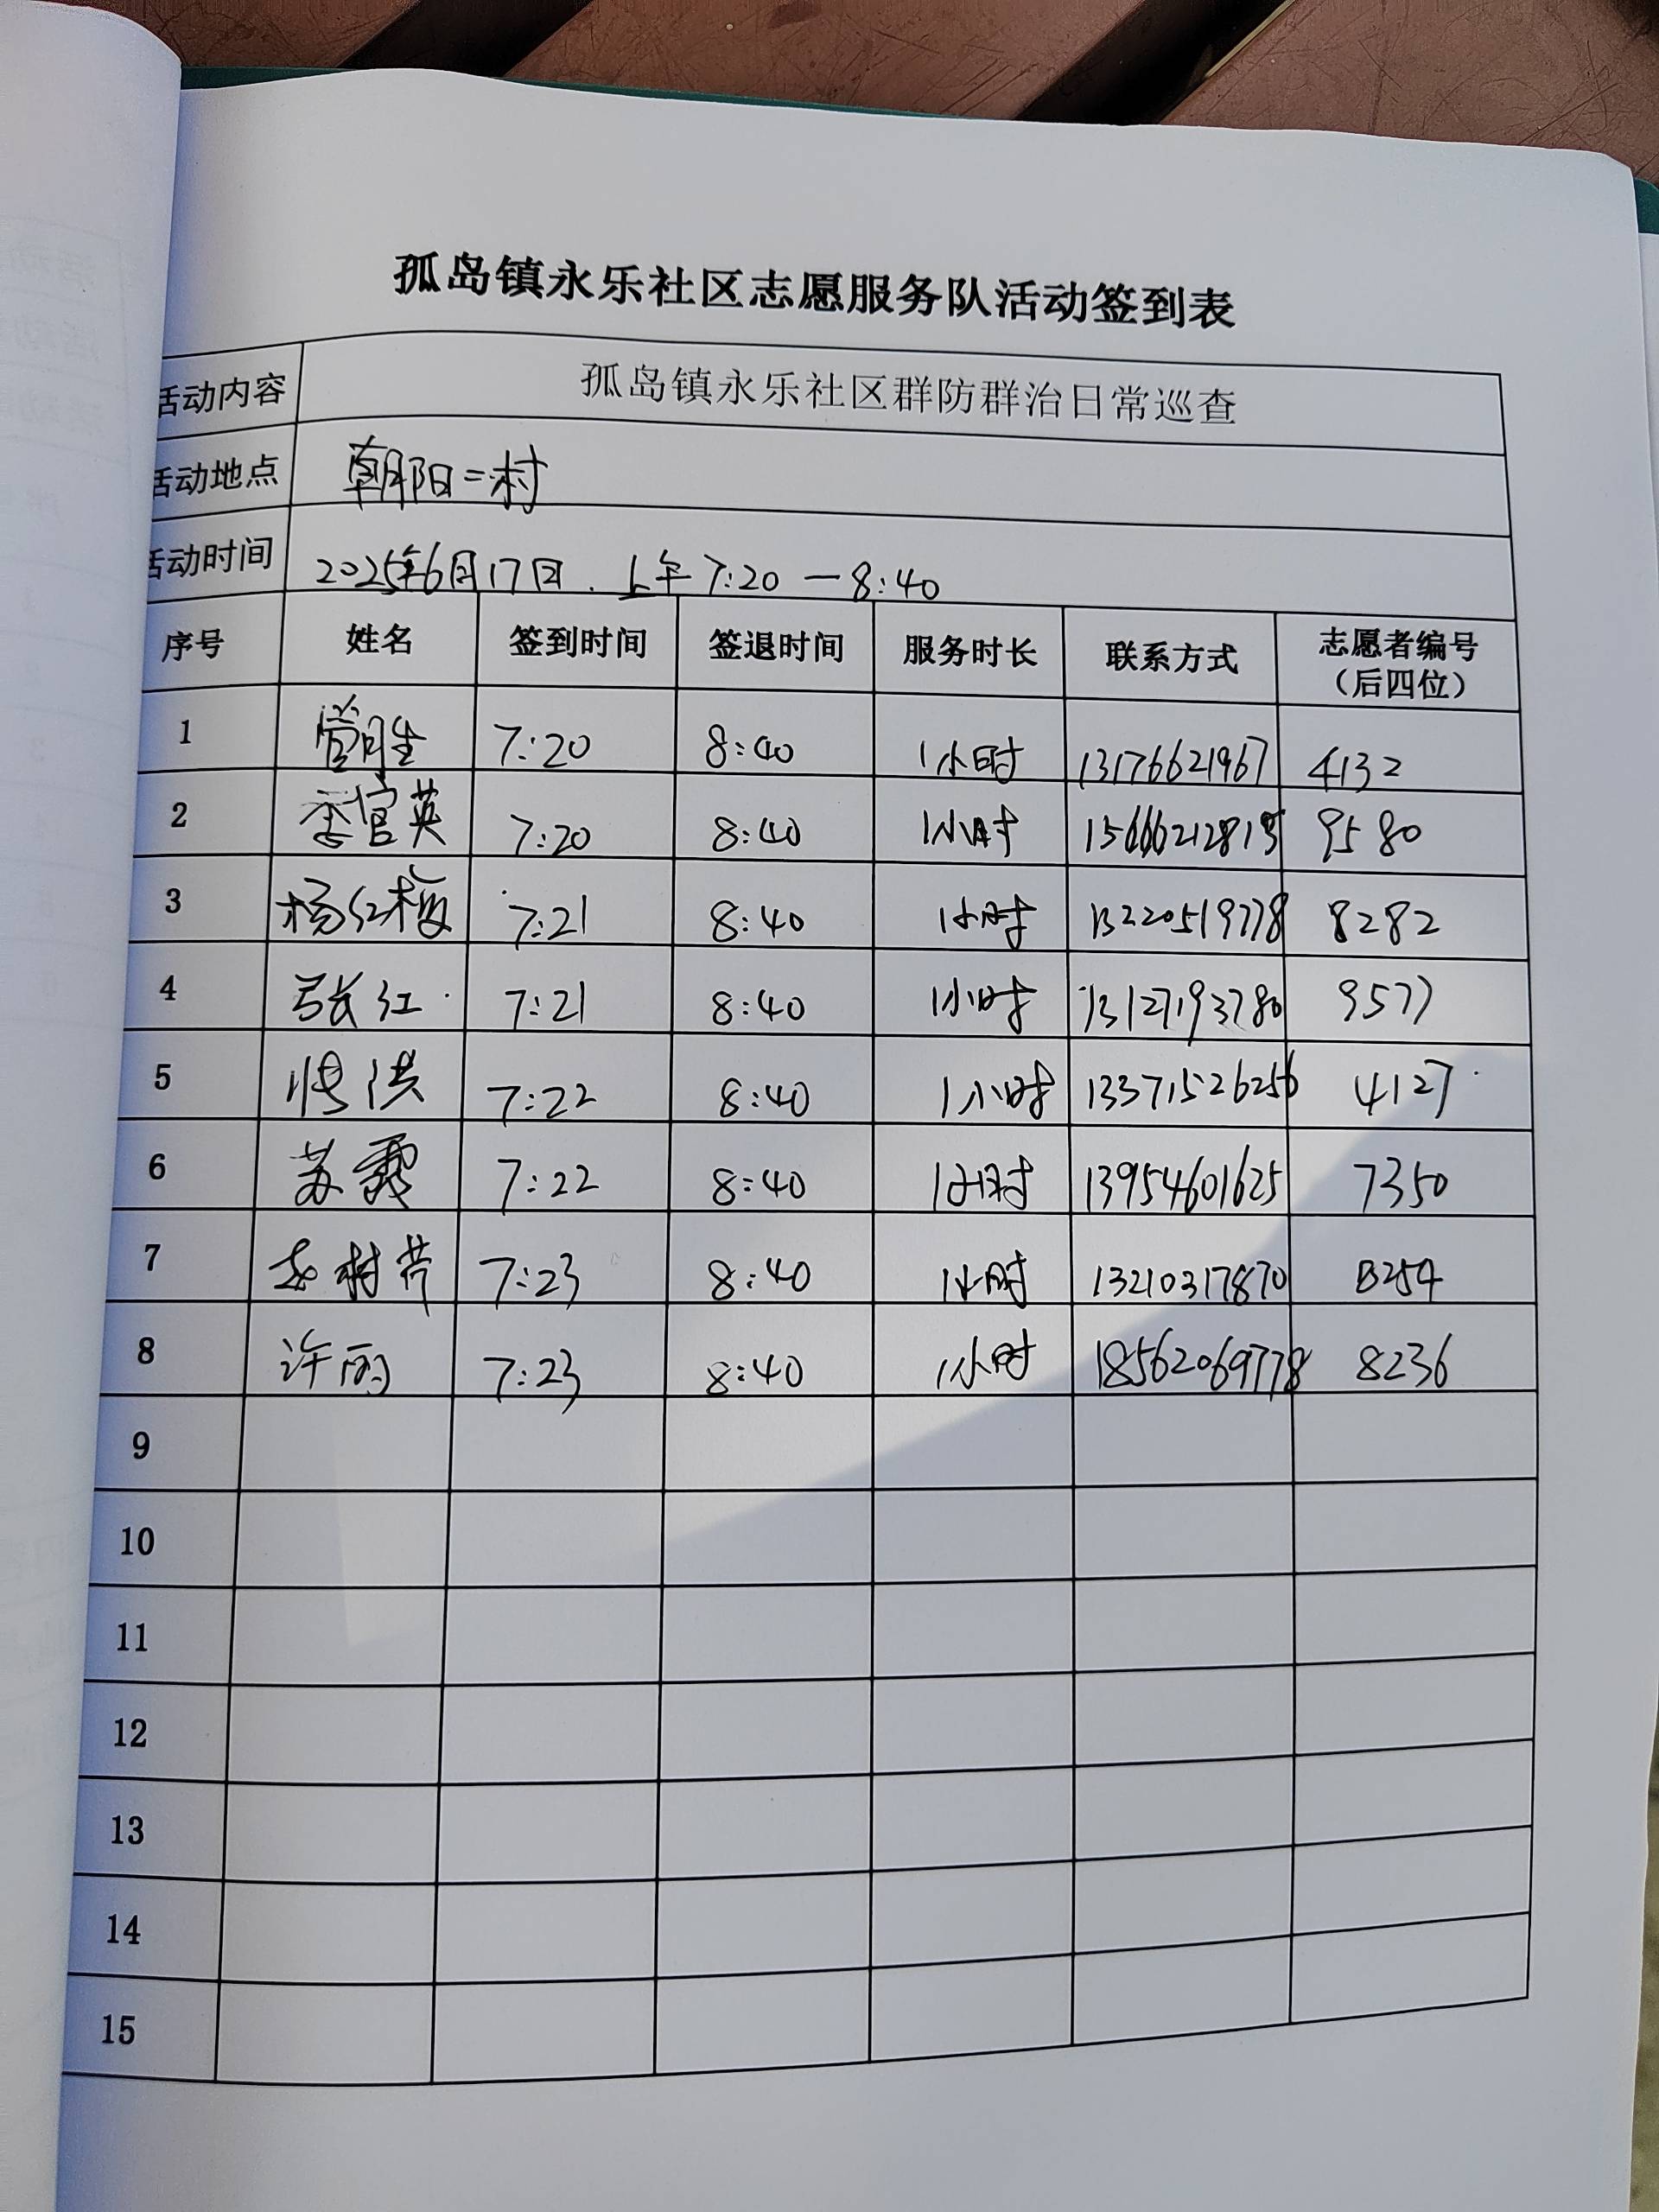 孤岛镇永乐社区志愿服务队活动签到表
活动内容 孤岛镇永乐社区群防群治日常巡查
活动地点 朝阳二村
活动时间 2025年6月17日.上午7:20—8:40
序号 姓名 签到时间 签退时间 服务时长 联系方式 志愿者编号
（后四位）
1 7:20 8:40 1小时 13176621967 4132
2 李官英 7:20 8:40 1小时 9580
3 杨红梅 7:21 8:40 1小时 13220519778 8282
4 张红 7:21 8:40 1小时 13127193780 9577
5 7:22 8:40 1小时 13371526256 4127
6 苏霞 7:22 8:40 1小时 13954601625 7350
7 7:23 8:40 1小时 13210317870 8254
8 许丽 7:23 8:40 1小时 18562069778 8236
9
10
11
12
13
14
15